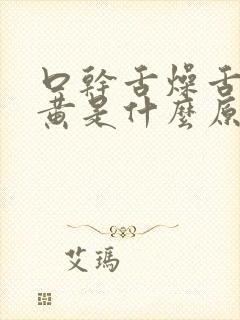 口幹舌燥舌
黃是什麼原
艾瑪